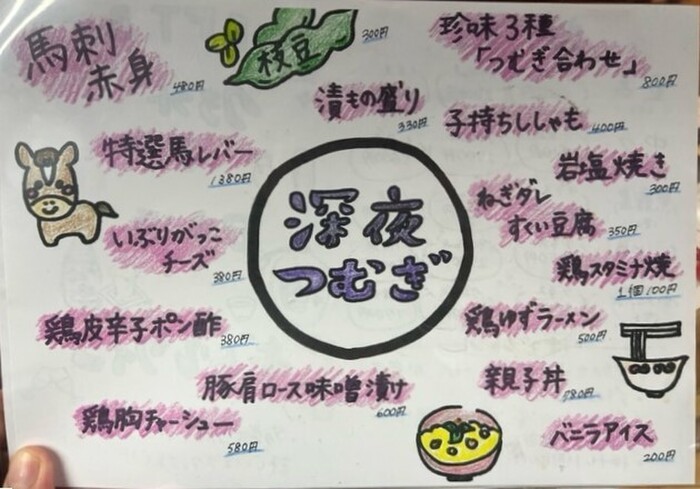 馬刺
赤身
480円
枝豆
300円
珍味3種
「つむぎ合わせ」
800円
漬もの盛り
330円
子持ちししゃも
400円
特選馬レバー
1380円
岩塩焼き
300円
ねぎダレ
すくい豆腐
350円
深夜
つむぎ
いぶりがっこ
チーズ
380円
鶏スタミナ焼
1個100円
鶏皮辛子ポン酢
380円
鶏ゆずラーメン
500円
豚肩ロース味噌漬け
600円
親子丼
780円
鶏胸チャーシュー
580円
バニラアイス
200円